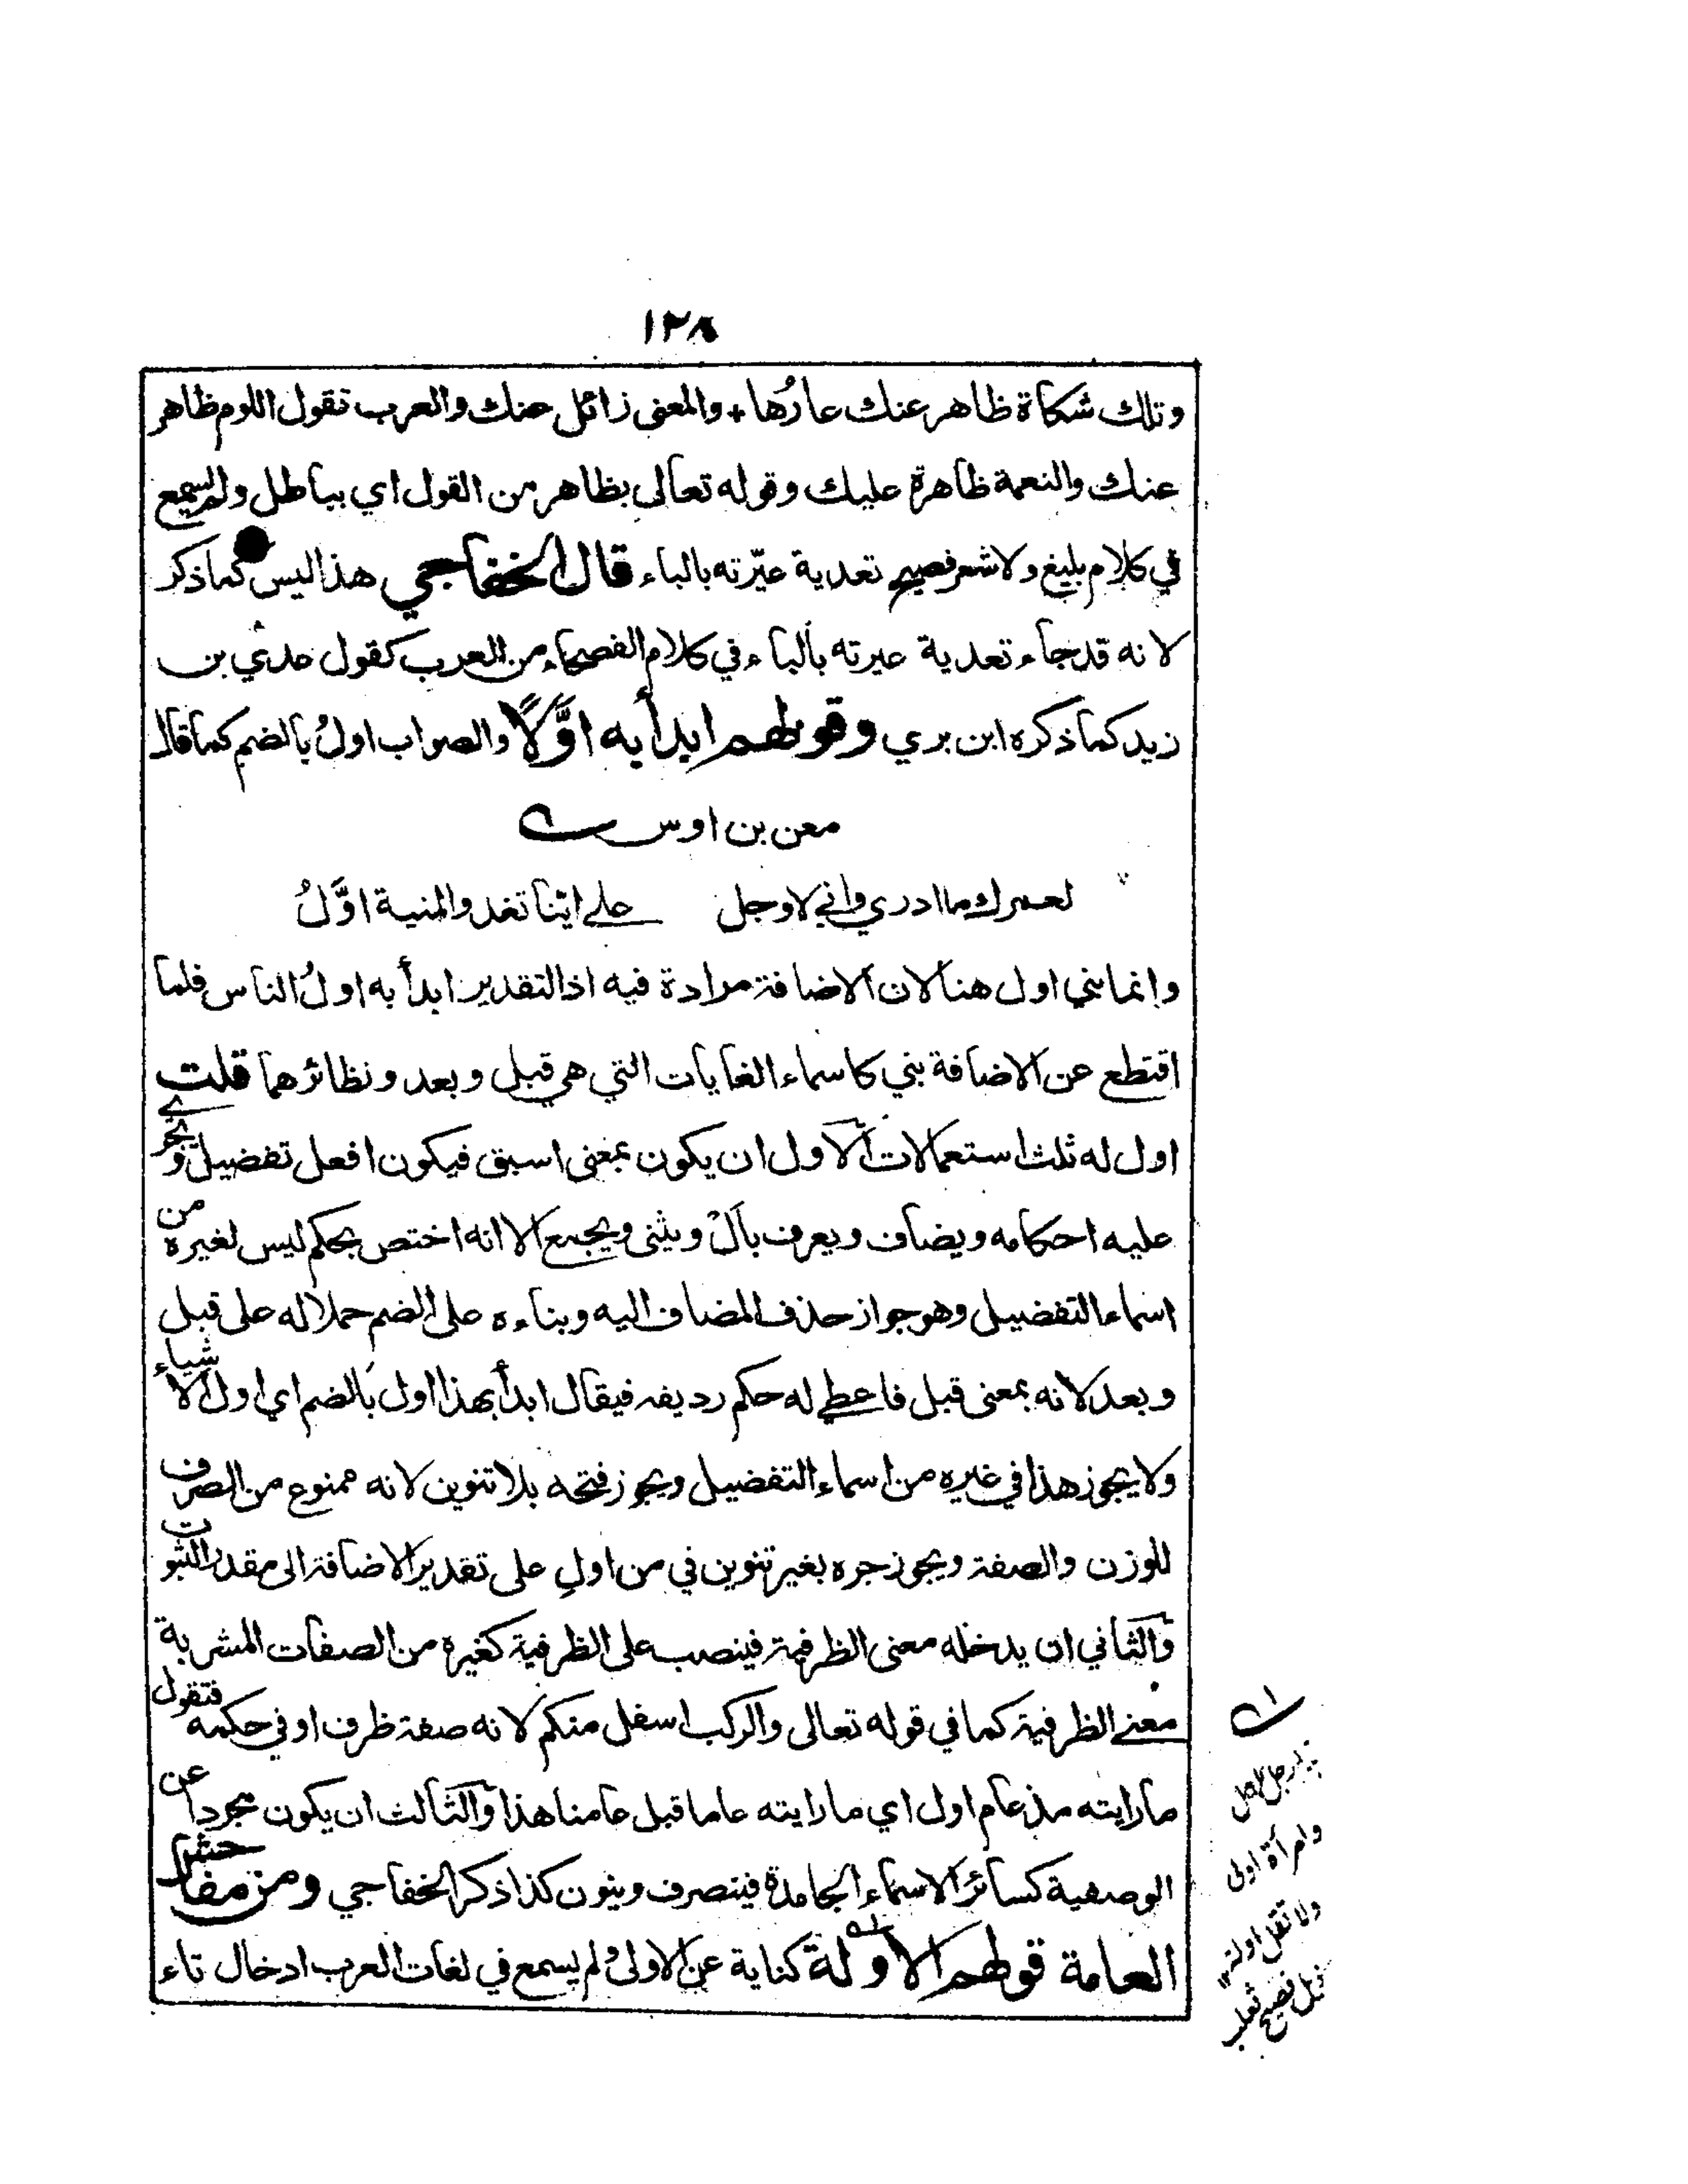 ١٢٨
وتلك شكاة ظاهر عنك عارُها + والمعنى زائل عنك والعرب تقول اللوم ظاهر
عنك والنعمة ظاهرة عليك وقوله تعالى بظاهر من القول اي بباطل ولم يسمع
في كلام بليغ ولا شعر فصيح تعدية عيّرته بالباء قال الخفاجي هذا ليس كما ذكر
لانه قد جاء تعدية عيرته بالباء في كلام الفصحاء من العرب كقول عدي بن
زيد كما ذكره ابن بري وقولهم ابدأ به اوَّلًا والصواب اولُ بالضم كما قال
معن بن اوس
لعمرك ما ادري واني لاوجل على اينا تغدو المنية اوَّلُ
وانما بني اول هنا لان الاضافة مرادة فيه اذ التقدير ابدأ به اولُ الناس فلما
اقتطع عن الاضافة بني كاسماء الغايات التي هي قبل وبعد ونظائرهما قلت
اول له ثلث استعمالات الاول ان يكون بمعنى اسبق فيكون افعل تفضيل ويجري
عليه احكامه ويضاف ويعرف بألْ ويثنى ويجمع الا انه اختص بحكم ليس لغيره من
اسماء التفضيل وهو جواز حذف المضاف اليه وبناءه على الضم حملا له على قبل
وبعد لانه بمعنى قبل فاعطي له حكم رديفه فيقال ابدأ بهذا اول بالضم اي اول الاشياء
ولا يجوز هذا في غيره من اسماء التفضيل ويجوز فتحه بلا تنوين لانه ممنوع من الصرف
للوزن والصفة ويجوز جره بغير تنوين في من اولِ على تقدير الاضافة الى مقدر الثبوت
والثاني ان يدخله معنى الظرفية فينصب على الظرفية كغيره من الصفات المشربة
معنى الظرفية كما في قوله تعالى والركب اسفل منكم لانه صفة ظرف او في حكمه فتقول
ما رايته مذ عام اول اي ما رايته عاما قبل عامنا هذا والثالث ان يكون مجردا عن
الوصفية كسائر الاسماء الجامدة فينصرف وينون كذا ذكر الخفاجي ومن مفاحش
العامة قولهم الاولة كناية عن الاولى ولم يسمع في لغات العرب ادخال تاء
وامرأة اولى
ولا تقل اولة
ذيل فصيح ثعلب